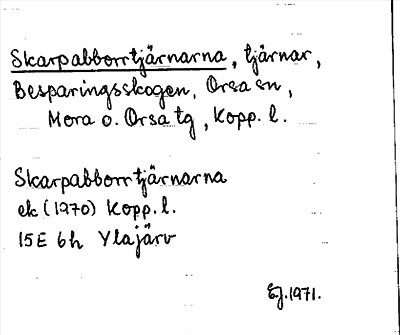 Skarpabborrtjärnarna, tjärnar,
Besparingsskogen, Orsa sn,
Mora o. Orsa tg, Kopp. l.
Skarpabborrtjärnarna
ek (1970) Kopp. l.
15E 6h Ylajärv
E.J. 1971.